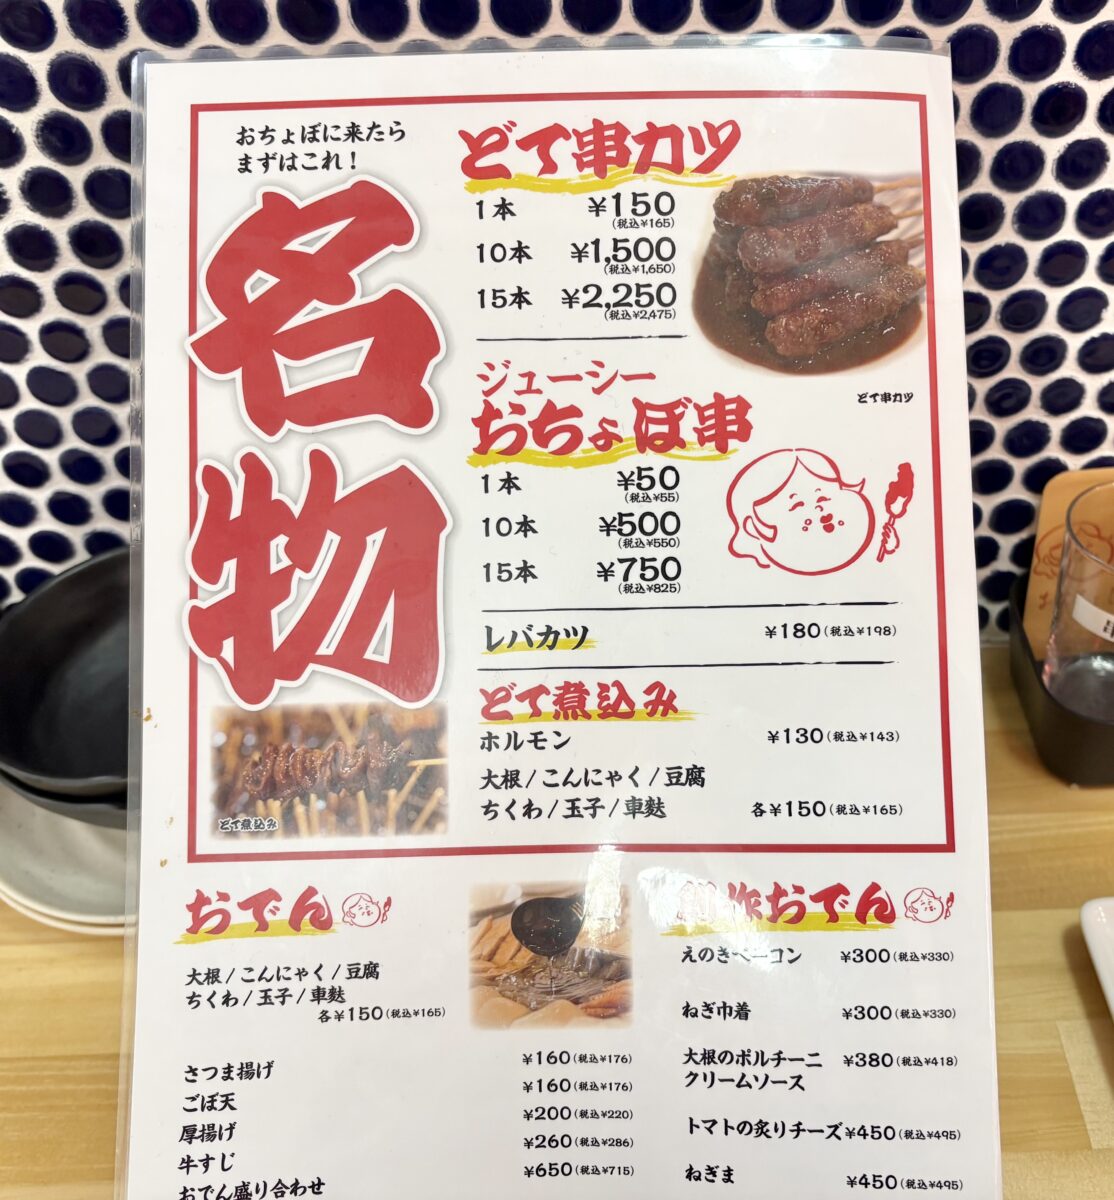 おちょぼに来たら
まずはこれ!
名物
どて串カツ
1本 ¥150
(税込¥165)
10本 ¥1,500
(税込¥1,650)
15本 ¥2,250
(税込¥2,475)
どて串カツ
ジューシー
おちょぼ串
1本 ¥50
(税込¥55)
10本 ¥500
(税込¥550)
15本 ¥750
(税込¥825)
レバカツ ¥180(税込¥198)
どて煮込み
ホルモン ¥130(税込¥143)
大根/こんにゃく/豆腐
ちくわ/玉子/車麩 各¥150(税込¥165)
どて煮込み
おでん
大根/こんにゃく/豆腐
ちくわ/玉子/車麩
各¥150(税込¥165)
さつま揚げ ¥160(税込¥176)
ごぼ天 ¥160(税込¥176)
厚揚げ ¥200(税込¥220)
牛すじ ¥260(税込¥286)
おでん盛り合わせ ¥650(税込¥715)
創作おでん
えのきベーコン ¥300(税込¥330)
ねぎ巾着 ¥300(税込¥330)
大根のポルチーニ ¥380(税込¥418)
クリームソース
トマトの炙りチーズ ¥450(税込¥495)
ねぎま ¥450(税込¥495)